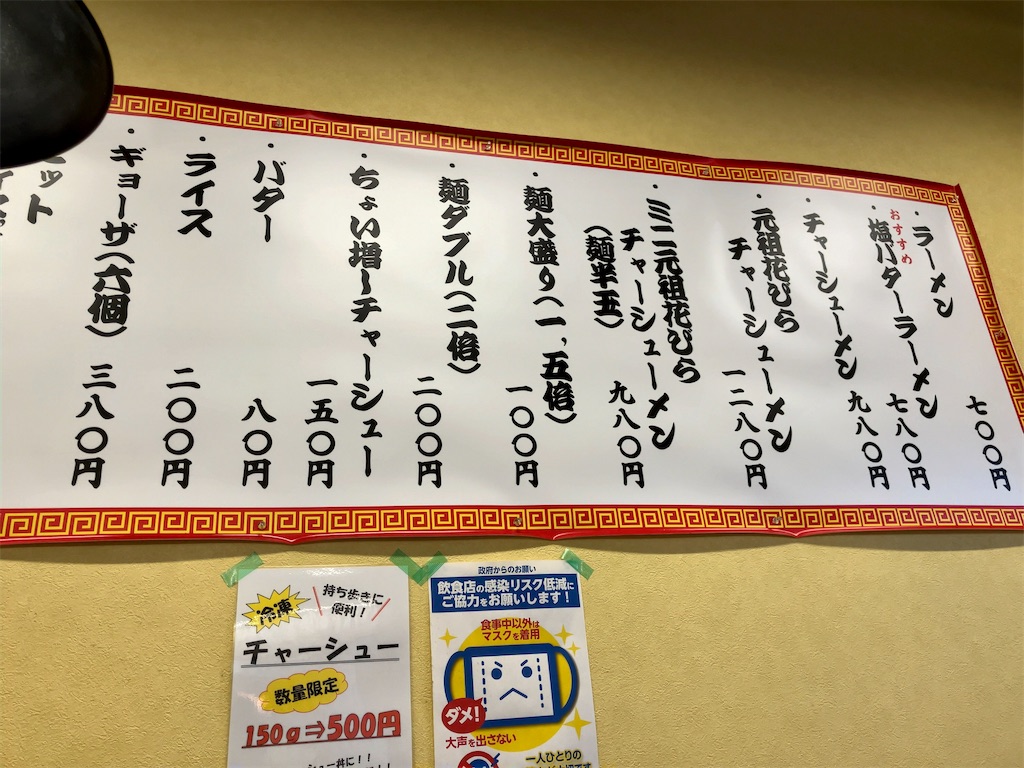 ・ラーメン 七〇〇円
おすすめ
・塩バターラーメン 七八〇円
・チャーシューメン 九八〇円
・元祖花びら
チャーシューメン 一二八〇円
・ミニ元祖花びら
チャーシューメン
(麺半玉) 九八〇円
・麺大盛り(一,五倍) 一〇〇円
・麺ダブル(二倍) 二〇〇円
・ちょい増〜チャーシュー 一五〇円
・バター 八〇円
・ライス 二〇〇円
・ギョーザ(六個) 三八〇円
ット
冷凍
持ち歩きに
便利!
チャーシュー
数量限定
150g⇒500円
シュー丼に!!
政府からのお願い
飲食店の感染リスク低減に
ご協力をお願いします!
食事中以外は
マスクを着用
ダメ!
大声を出さない
一人ひとりの